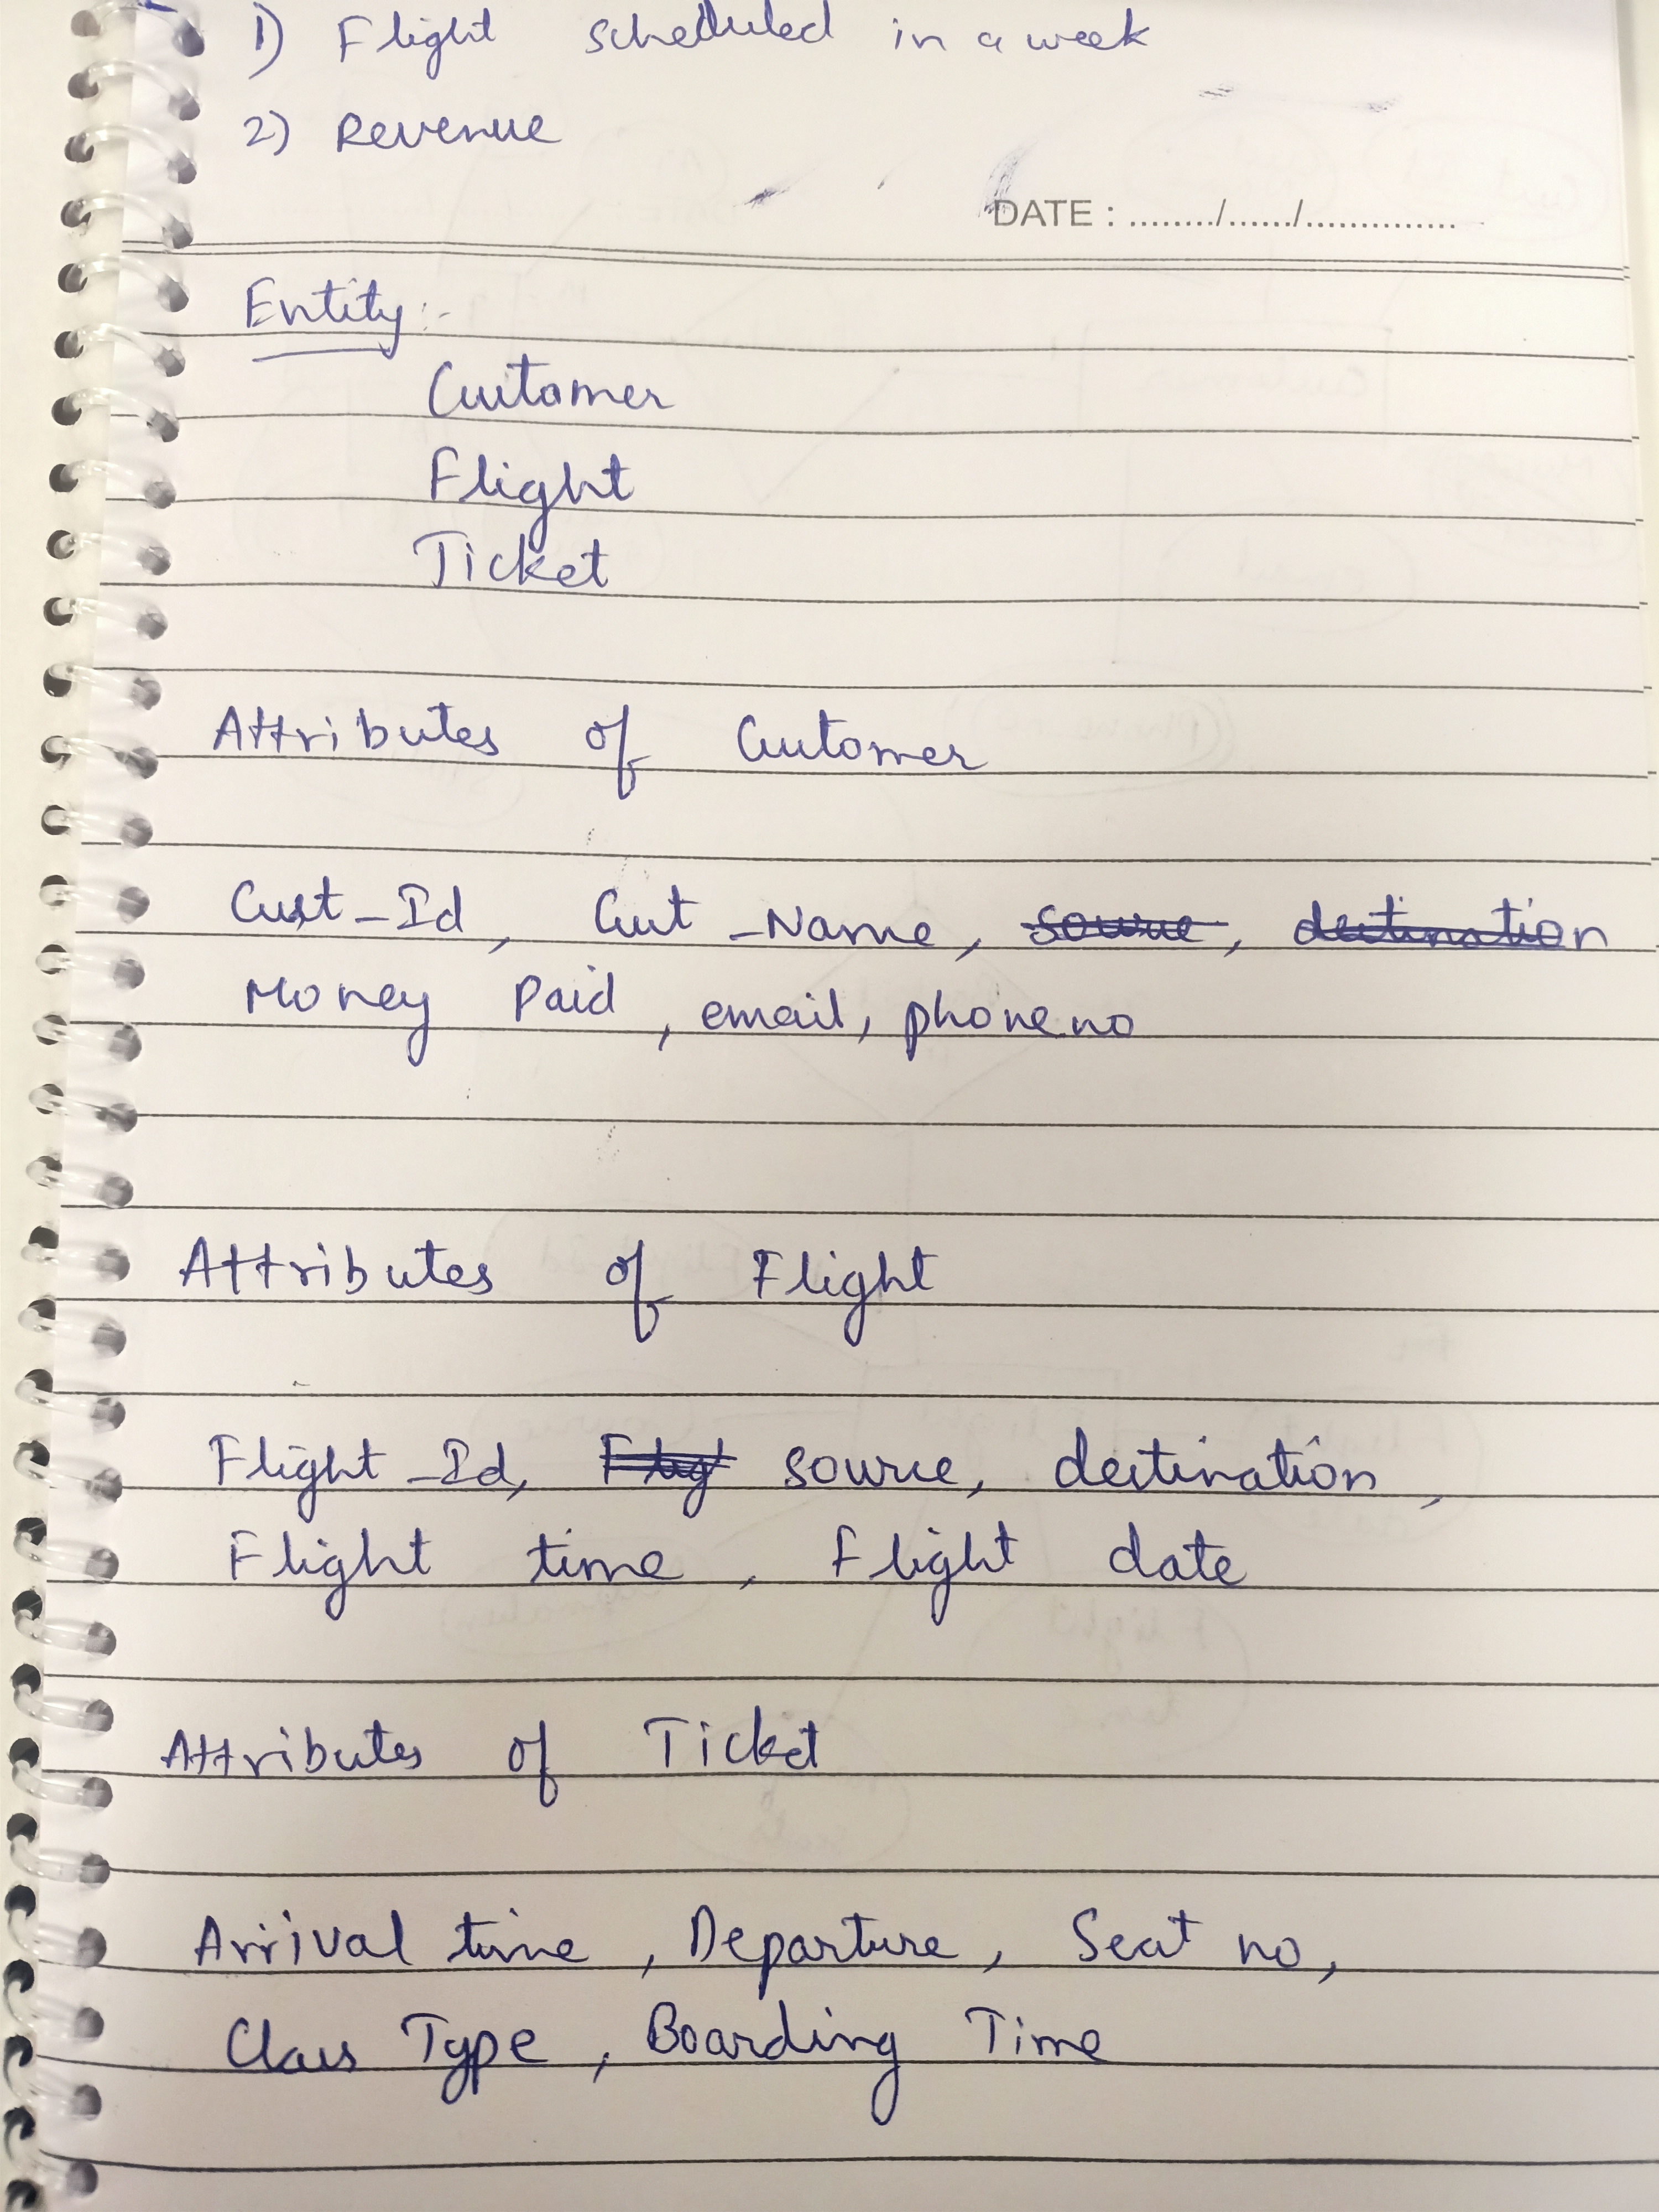 1) Flight scheduled in a week
2) Revenue
DATE : ......../....../..............
Entity :-
Customer
Flight
Ticket
Attributes of Customer
Cust_Id, Cust_Name, source, destination
Money Paid, email, phone no
Attributes of Flight
Flight_Id, Flig source, destination,
Flight time, Flight date
Attributes of Ticket
Arrival time, Departure, Seat no,
Class Type, Boarding Time